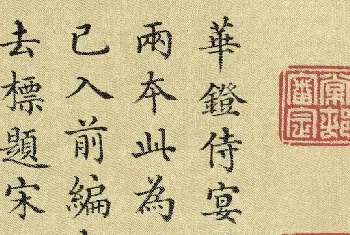 華鐙侍宴
兩本此為
已入前編
去標題宋